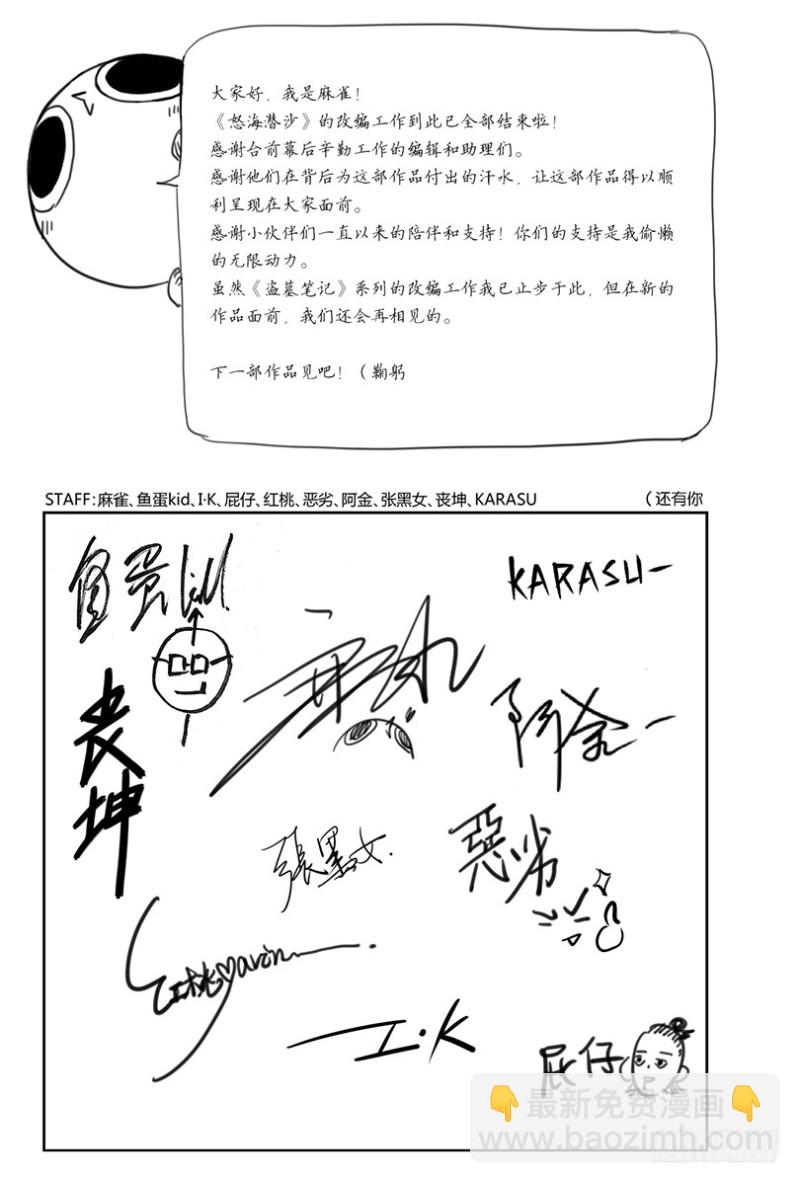 大家好，我是麻雀！
《怒海潜沙》的改编工作到此已全部结束啦！
感谢台前幕后辛勤工作的编辑和助理们。
感谢他们在背后为这部作品付出的汗水，让这部作品得以顺
利呈现在大家面前。
感谢小伙伴们一直以来的陪伴和支持！你们的支持是我偷懒
的无限动力。
虽然《盗墓笔记》系列的改编工作我已止步于此，但在新的
作品面前，我们还会再相见的。
下一部作品见吧！（鞠躬
STAFF：麻雀、鱼蛋kid、I·K、屁仔、红桃、恶劣、阿金、张黑女、丧坤、KARASU （还有你
鱼蛋kid
KARASU
丧坤
阿金
張黑女
惡劣
红桃
I·K
屁仔
最新免费漫画
www.baozimh.com